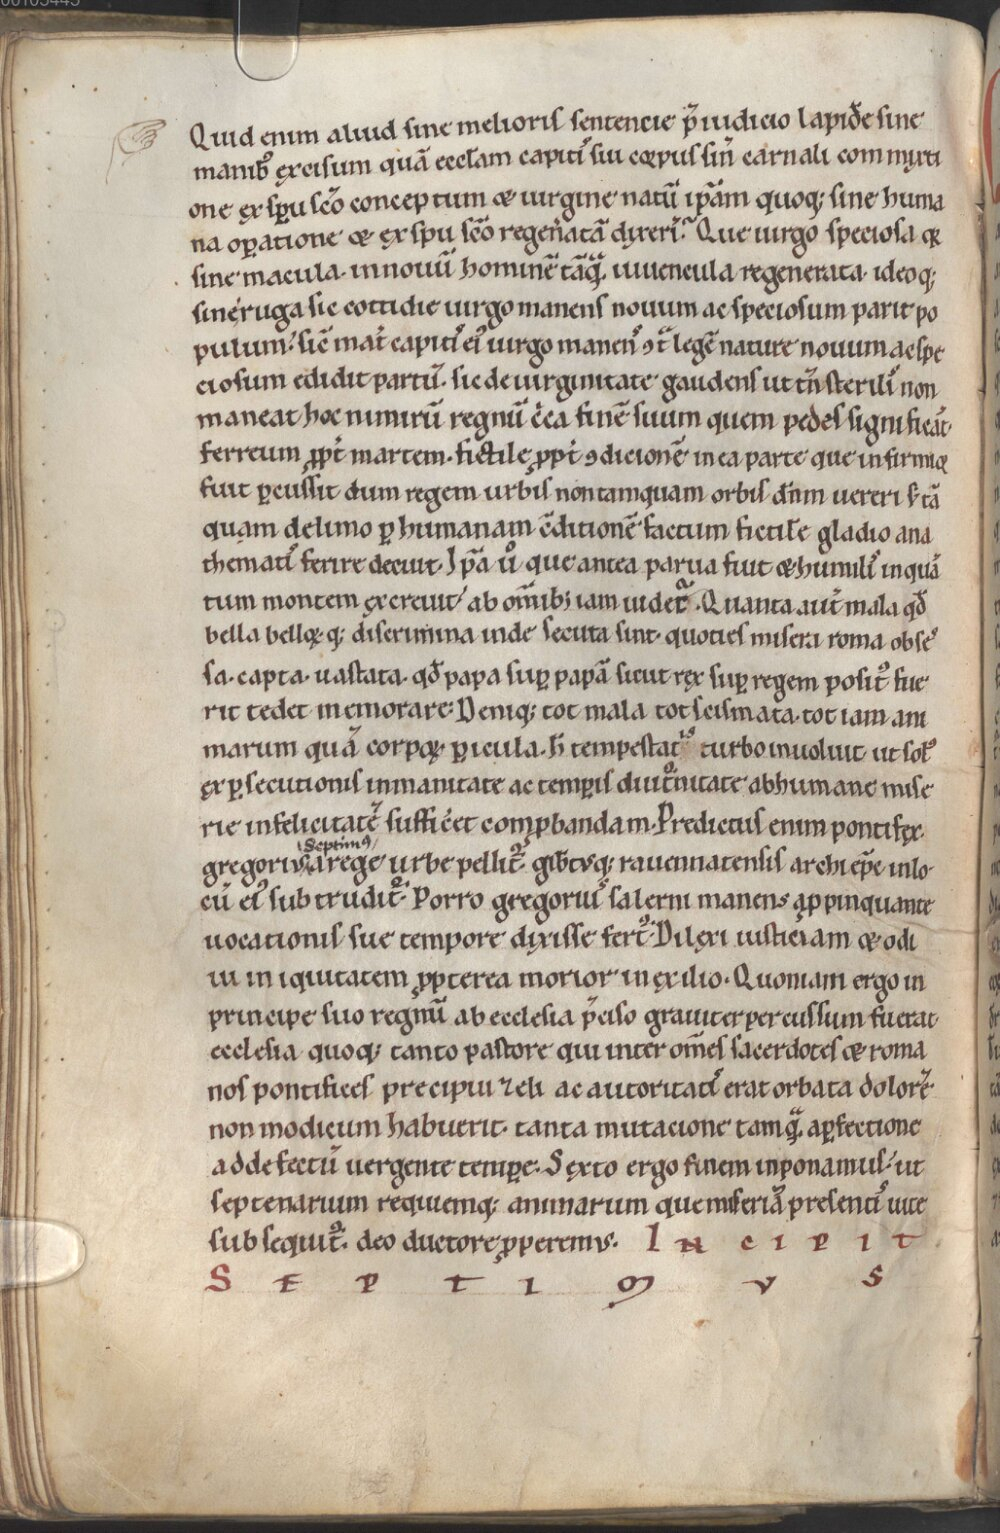 00105445
Quid enim aliud sine melioris sentencie p̄iudicio lapidē sine
manibꝰ ęxcisum quā eccl̄am capitis sui corpus sin̄ carnali commyxti
one ęx sp̄u sc̄o conceptum & uirgine natū ip̄am quoq; sine huma
na op̱atione & ęx sp̄u sc̄o regen̄atā dixeri᷒. Que uirgo speciosa &
sine macula. in nouū hominē tāq̄ iuuencula regenerata. ideoq;
sine ruga sic cottidie uirgo manens nouum ac speciosum parit po
pulum. sic̄ mat̄ capitis ei᷒ uirgo manens ꝯt̄ legē nature nouum ac spe
ciosum edidit partū. sic de uirginitate gaudens ut tn̄ sterilis non
maneat hoc nimirū regnū c̄ca finē suum quem pedes significāt
ferreum ꝓpt̄ martem. fictile ꝓpt̄ ꝯdicionē in ea parte que infirmior
fuit ꝑcussit dum regem urbis non tamquam orbis dn̄m uereri s; tā
quam de limo ꝑ humanam c̄ditionē factum fictile gladio ana
thematis ferire decuit. Ip̄a u̇ que antea parua fuit & humilis in quā
tum montem ęxcreuit ab om̄ibꝫ iam uidet᷑. Quanta aut̄ mala qd̄
bella bellorꝫq; discrimina inde secuta sint. quoties misera roma obses
sa. capta. uastata. qd̄ papa suꝑ papā sicut ręx suꝑ regem positꝰ fue
rit tedet memorare. Deniq; tot mala tot scismata. tot iam ani
marum quā corporꝫ ꝑicula. h̄ tempestatis turbo inuoluit. ut solꝰ
ęx ꝑsecutionis inmanitate ac temꝑis diuturnitate ab humane mise
rie infelicitatē sufficeret comꝓbandam. Predictus enim pontifęx
gregorius septimꝰ a rege urbe pellit᷑. gib̄tusq; rauennatensis archiep̄c in lo
cū ei᷒ subtrudit᷑. Porro gregorius salerni manens aꝓpinquante
uocationis sue tempore dixisse fert᷑. Dilęxi iusticiam & odi
ui iniquitatem ꝓpterea morior in ęxilio. Quoniam ergo in
principe suo regnū ab ecclesia p̄ciso grauiter percussum fuerat
ecclesia quoq; tanto pastore qui inter om̄es sacerdotes & roma
nos pontifices precipui zeli ac autoritatis erat orbata dolorē
non modicum habuerit. tanta mutacione tamq̄ a ꝑfectione
ad defectū uergente temꝑe. Sęxto ergo finem inponamus. ut
septenarium requiemq; animarum que miseriā presentis uite
subsequit᷑. deo ductore ꝓperemus. INCIPIT
SEPTIMVS